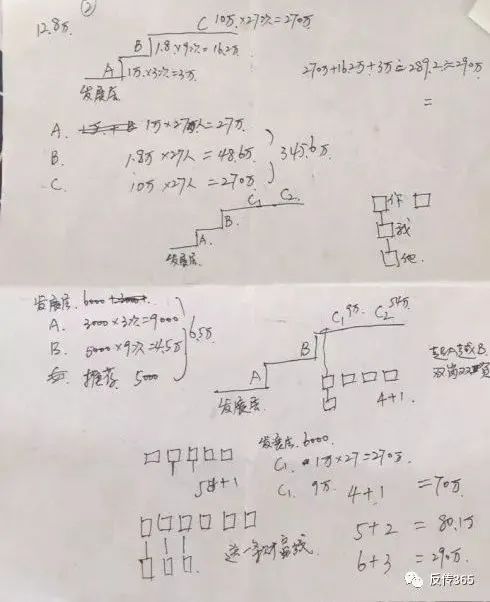 ②
12.8万
C 10万×27次=270万
B 1.8×9次=16.2万
A 1万×3次=3万
发展层
270万+16.2万+3万=289.2≈290万
=
A. 1万×27人=27万
B. 1.8万×27人=48.6万
C. 10万×27人=270万
345.6万
C₁ C₂
B
A
发展层
你
我
他
发展层 6000
A. 3000×3次=9000
B. 5000×9次=4.5万
推荐 5000
6.5万
C₁ 9万 C₂ 54万
B
A
发展层
4+1
双岗双
5+1
发展层 6000
C₁ 1万×27=270万
C₁ 9万 4+1 =70万
5+2 = 80.1万
6+3 = 290万
这一条财富线
反传365